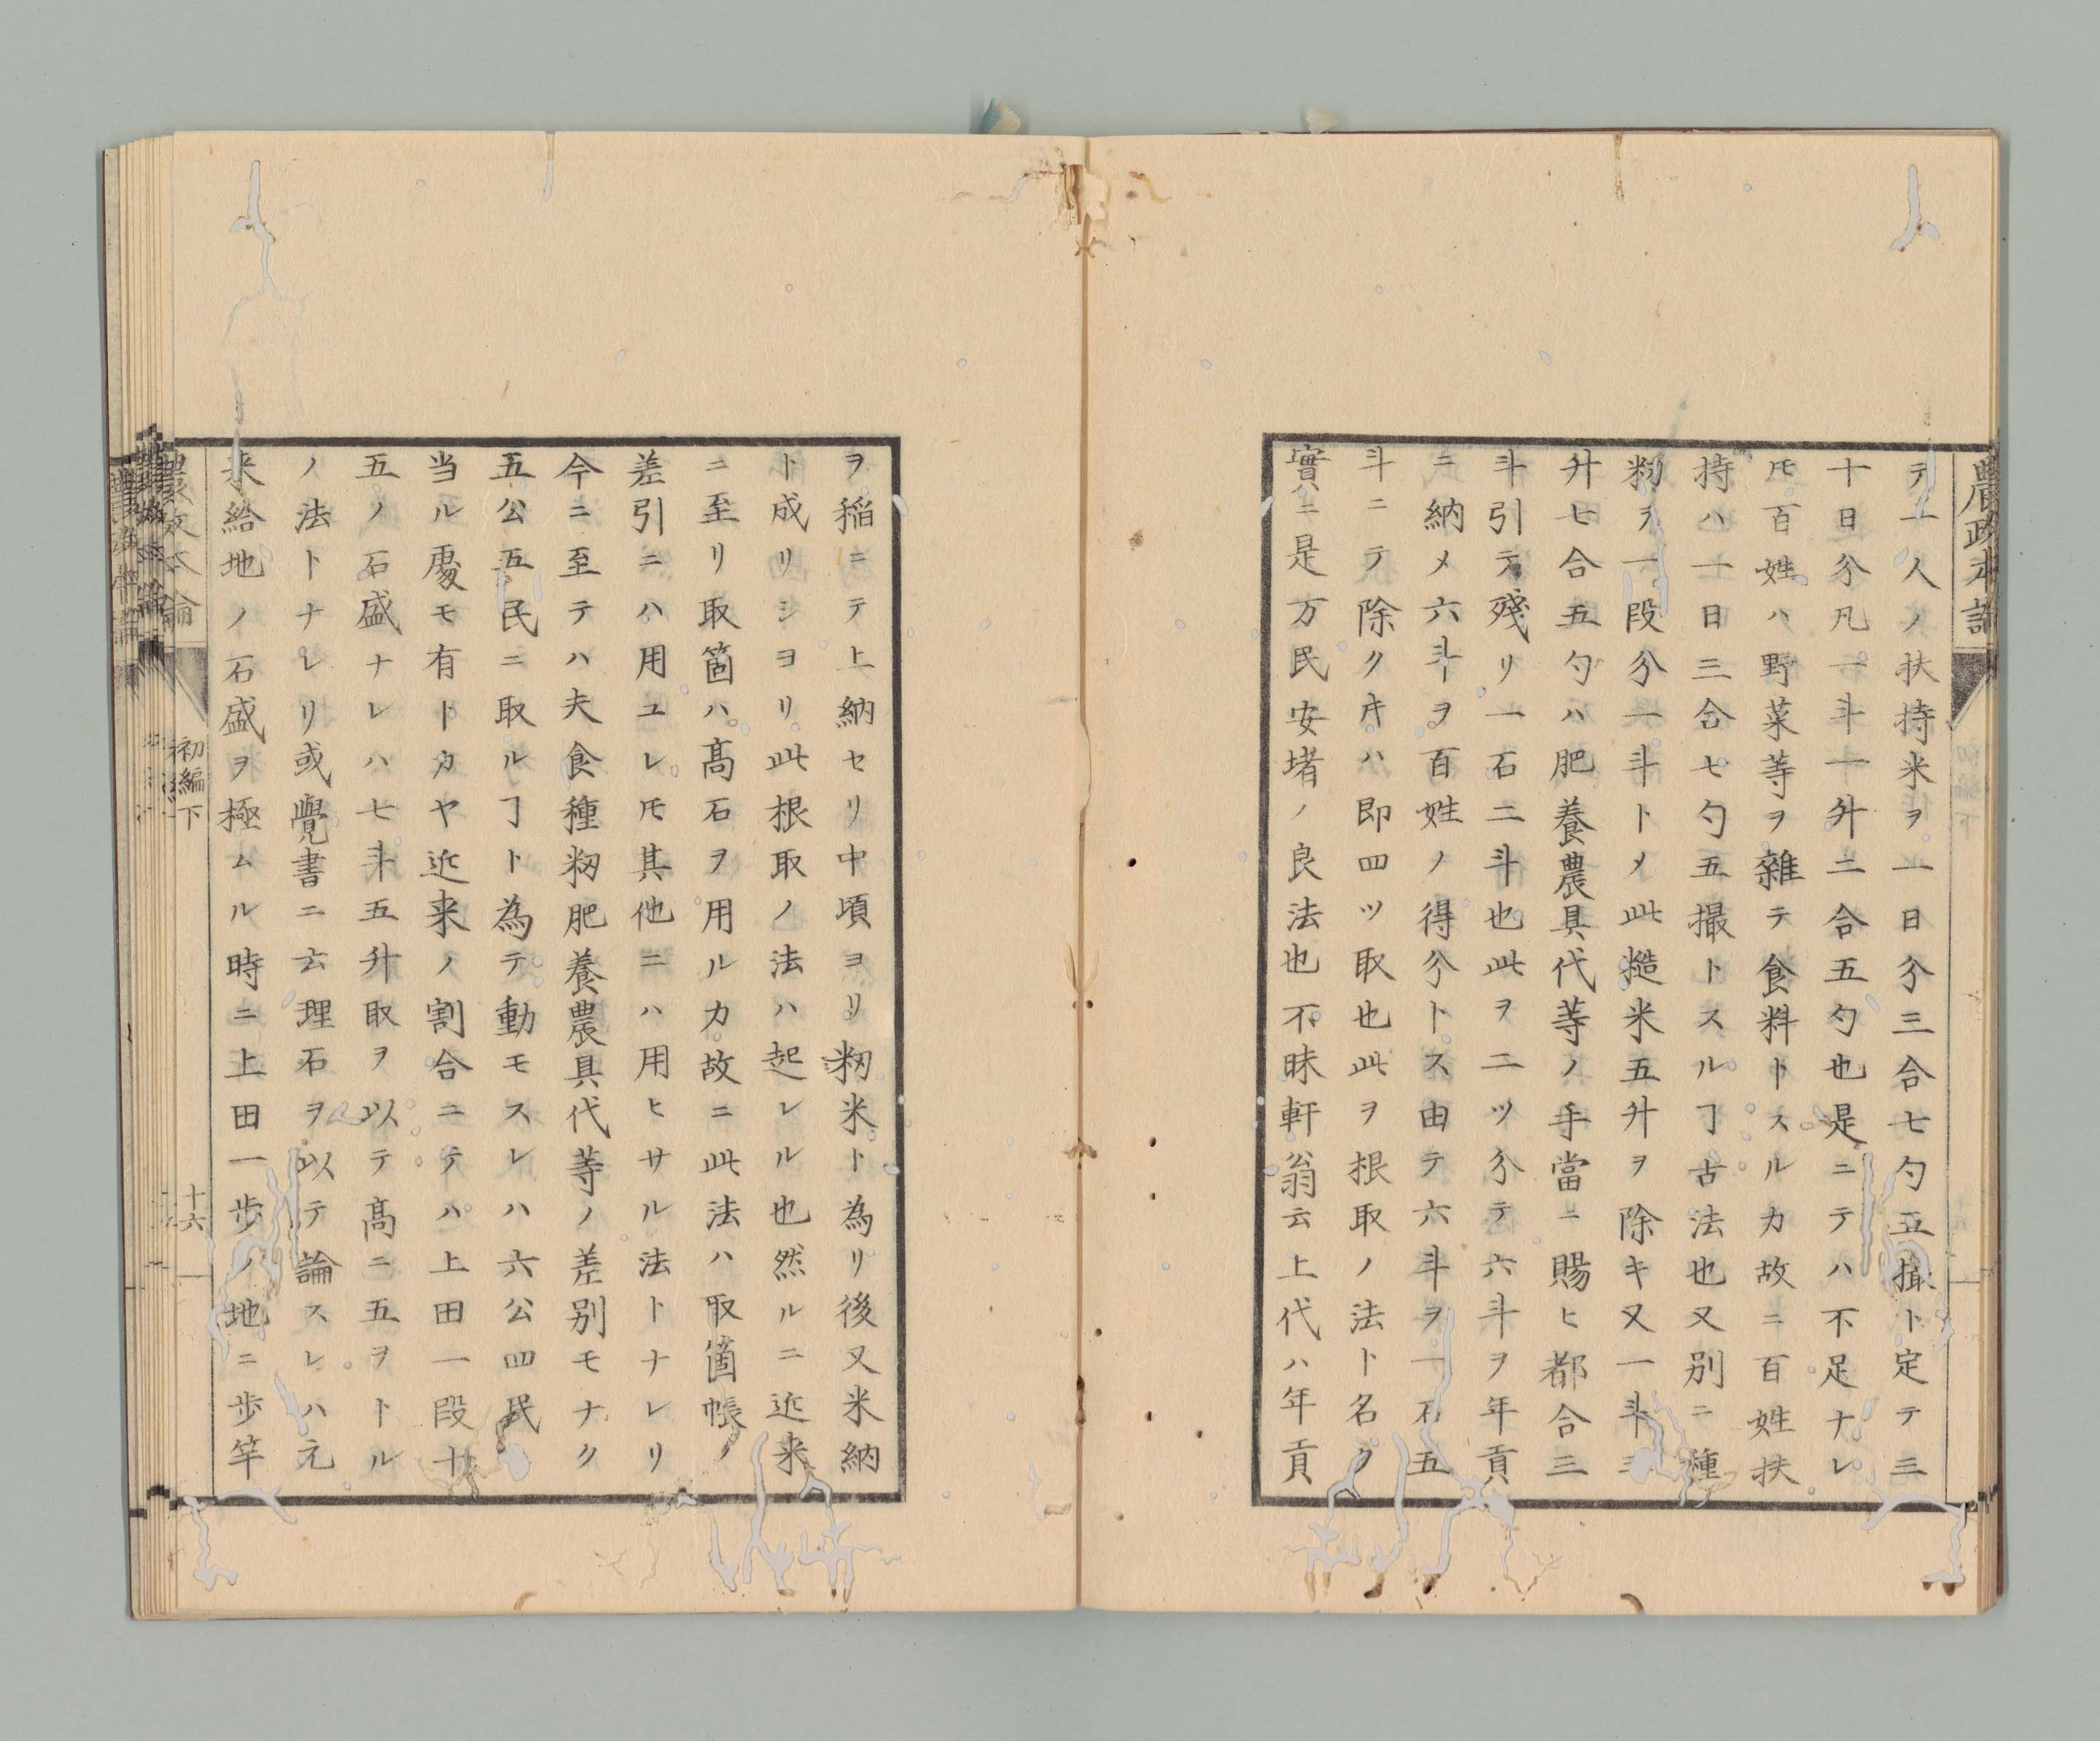 農政本論
テ一人ノ扶持米ヲ一日分三合七勺五撮ト定テ三
十日分凡一斗一升二合五勺也是ニテハ不足ナレ
𪜈百姓ハ野菜等ヲ雜テ食料トスルカ故ニ百姓扶
持ハ一日三合七勺五撮トスルヿ古法也又別ニ種
籾ヲ一段分一斗トメ此糙米五升ヲ除キ又一斗三
升七合五勺ハ肥養農具代等ノ手當ニ賜ヒ都合三
斗引テ殘リ一石二斗也此ヲ二ツ分テ六斗ヲ年貢
ニ納メ六斗ヲ百姓ノ得分トス由テ六斗ヲ一石五
斗ニテ除クキハ即四ツ取也此ヲ根取ノ法ト名ク
實ニ是万民安堵ノ良法也不昧軒翁云上代ハ年貢
ヲ稲ニテ上納セリ中頃ヨリ籾米ト為リ後又米納
ト成リシヨリ此根取ノ法ハ起レル也然ルニ近来
ニ至リ取箇ハ髙石ヲ用ルカ故ニ此法ハ取箇帳ノ
差引ニハ用ユレ𪜈其他ニハ用ヒサル法トナレリ
今ニ至テハ夫食種籾肥養農具代等ノ差別モナク
五公五民ニ取ルヿト為テ動モスレハ六公四民
当ル處モ有トカヤ近来ノ割合ニテハ上田一段十
五ノ石盛ナレハ七斗五升取ヲ以テ髙ニ五ヲトル
ノ法トナレリ或覺書ニ云理石ヲ以テ論スレハ元
来給地ノ石盛ヲ極ムル時ニ上田一歩ノ地ニ歩竿
農政本論
初編下
十六